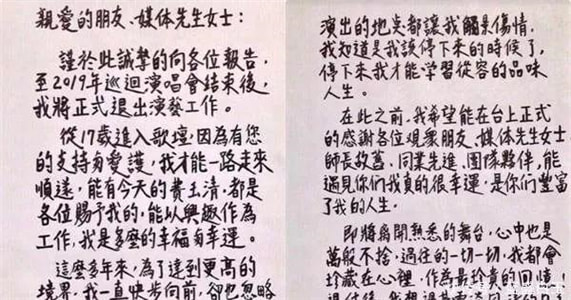 親愛的朋友、媒体先生女士：
謹於此誠摯的向各位報告，
至2019年巡迴演唱會結束後，
我將正式退出演藝工作。
從17歲進入歌壇，因為有您
的支持與愛護，我才能一路走來
順遂，能有今天的費玉清，都是
各位賜予我的，能以興趣作為
工作，我是多麼的幸福與幸運。
這麼多年來，為了達到更高的
境界，我一直快步向前，卻也忽略
演出的地点都讓我觸景傷情，
我知道是我該停下來的時候了，
停下來我才能學習從容的品味
人生。
在此之前，我希望能在台上正式
的感謝各位観衆朋友、媒体先生女士
師長故舊、同業先進、團隊夥伴，能
遇見你們我真的很幸運，是你們豐富
了我的人生。
即將離開熟悉的舞台，心中也是
萬般不捨，過往的一切一切，我都會
珍藏在心裡，作為最珍貴的回憶！